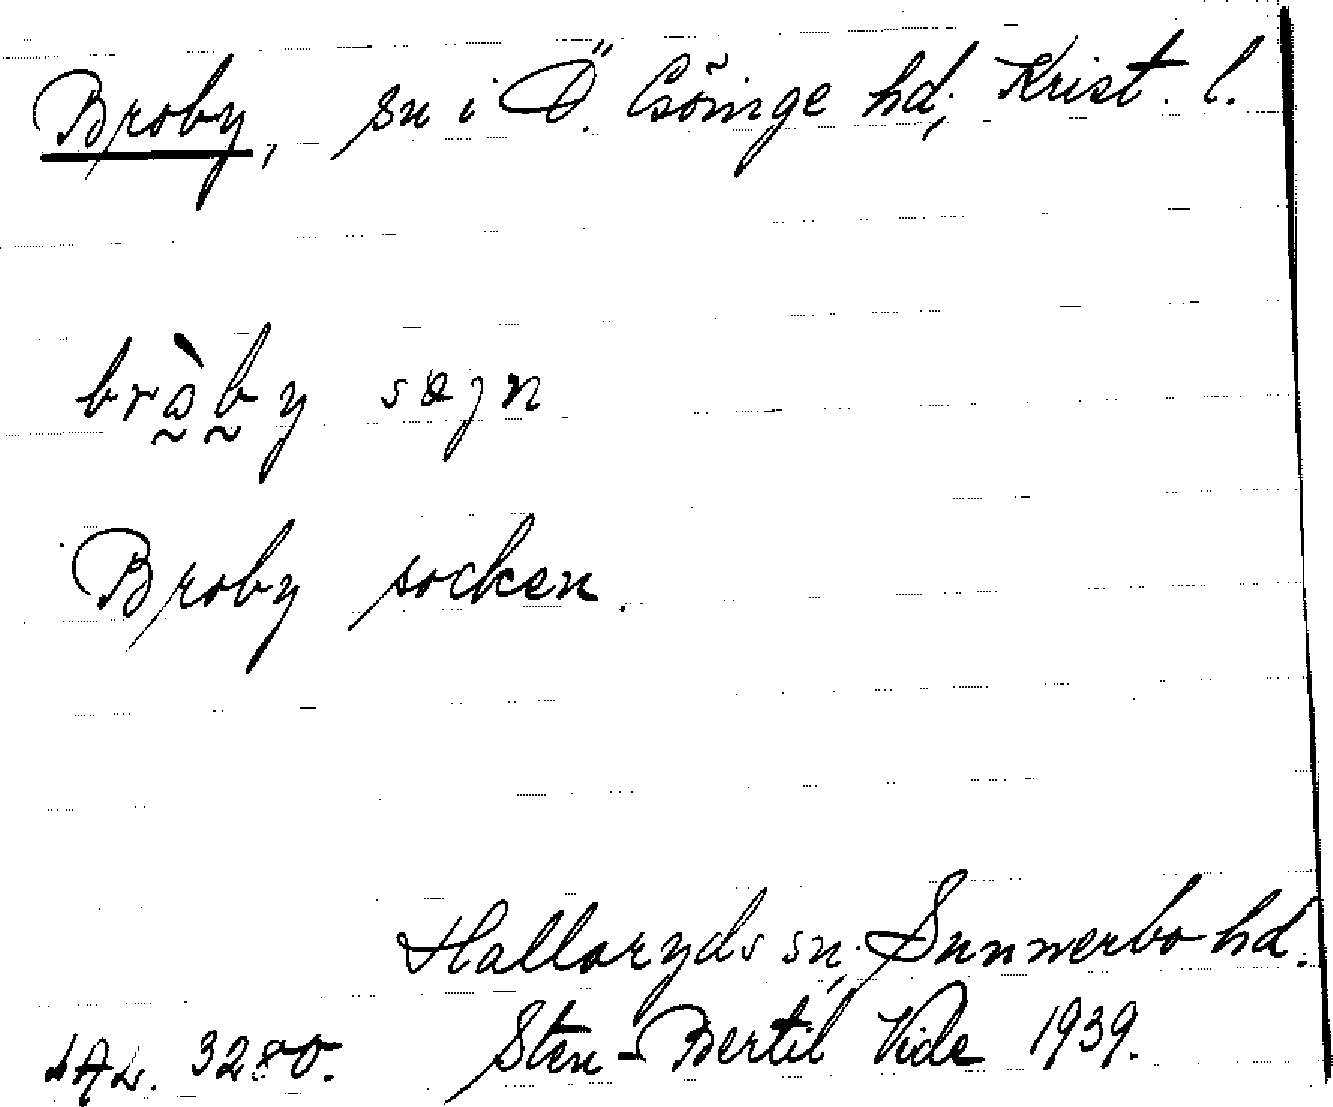 Broby, sn i Ö. Göinge hd, Krist. l.
bràby sægn
Broby socken.
Hallaryds sn, Sunnerbo hd.
LAL. 3280. Sten-Bertil Vide 1939.